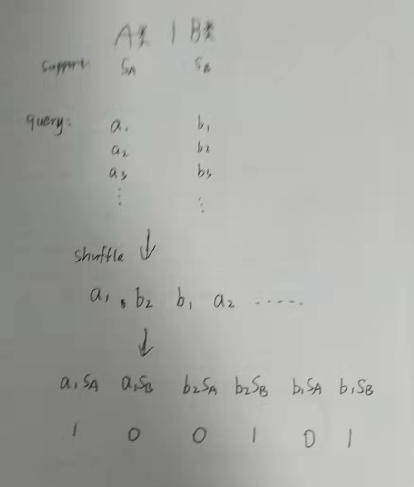 A类 | B类
support: SA SB
query: a1 b1
a2 b2
a3 b3
⋮ ⋮
shuffle ↓
a1, b2 b1 a2 ......
↓
a1SA a1SB b2SA b2SB b1SA b1SB
1 0 0 1 0 1